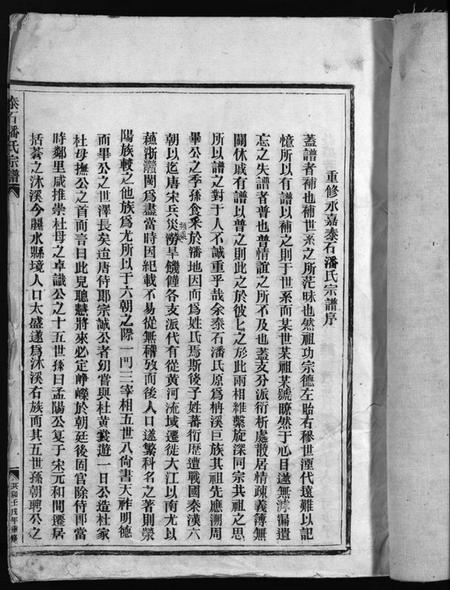 重修永嘉泰石潘氏宗譜序
蓋譜者補也補世系之所茫昧也然祖功宗德左昭右穆世湮代遠難以記
憶所以有譜以補之則于世系而某世某祖某號瞭然于心目遂無滲漏遺
忘之失譜者普也普情誼之所不及也蓋支分派衍析處散居情疎義薄無
關休戚有譜以普之則此之於彼上之於此兩相維繫旋深同宗共祖之思
所以譜之對于人不誠重乎哉余泰石潘氏原爲柟溪巨族其祖先應溯周
畢公之季孫食采於潘地因而爲姓氏焉斯後子姓蕃衍歷遭戰國秦漢六
朝以迄唐宋兵災勞旱饑饉各支派代有從黃河流域遷徙大江以南尤以
越浙贛閩爲盡當時因紀載不易從無稽攷而後人口遂繁科名之著則滎
陽族較之他族爲尤所以于六朝之際一門三宰相五世八尚書天祚明德
而畢公之世澤長矣迨唐侍耶宗誠公者幼嘗與杜黃裳遊一日公造杜家
杜母撫公之首而言曰此兒聰慧將來必定崢嶸於朝廷後固官除侍郎當
時鄰里咸推崇杜母之卓識公之十五世孫曰孟陽公复于宋元和間遷居
括蒼之沐溪今麗水縣境人口太盛遂爲沐溪右族而其五世孫朝聘公之
泰石潘氏宗譜